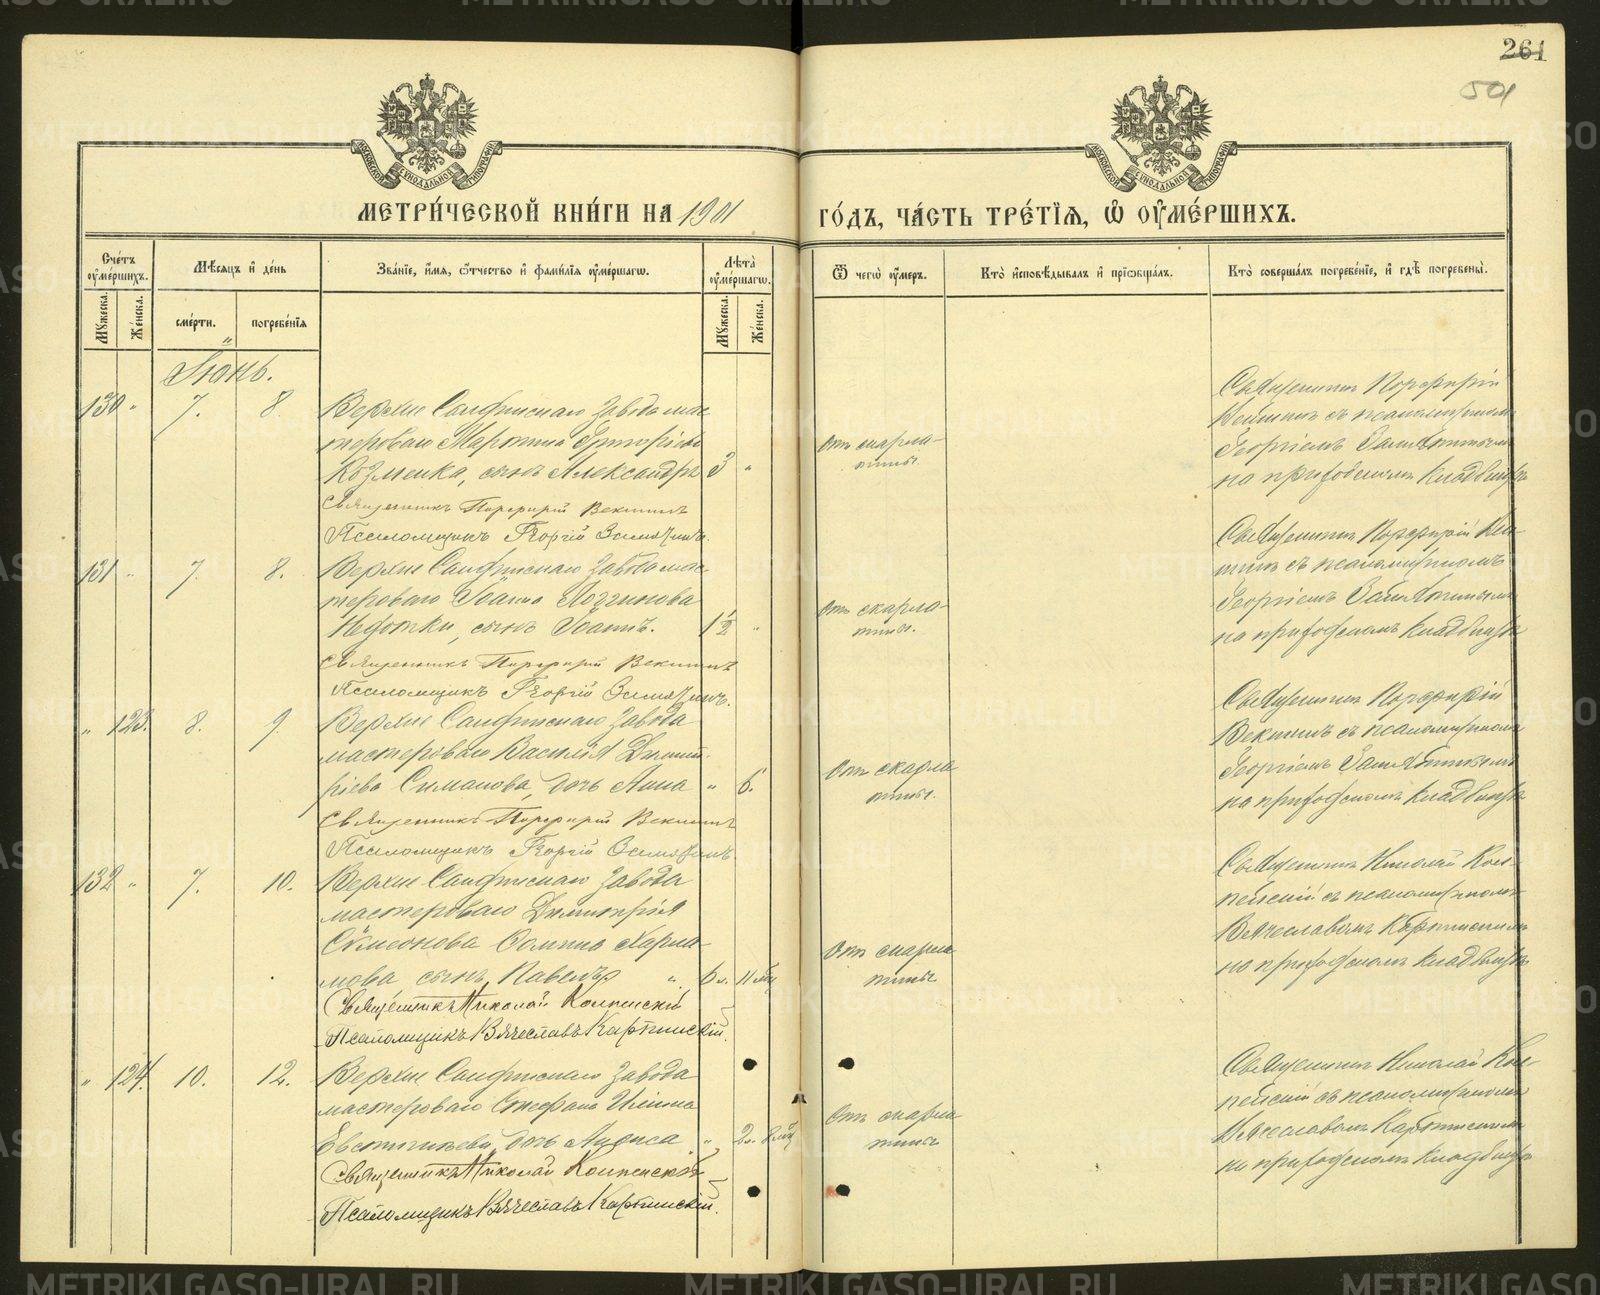 261
501
МЕТРИ́ЧЕСКОЙ КНИ́ГИ НА 1901
ГО́ДЪ, ЧА́СТЬ ТРЕ́ТІѦ, Ѡ҆ ОУ҆МЕ́РШИХЪ.
Сче́тъ оу҆ме́ршихъ.
Мꙋжеска.
Же́нска.
Мѣ́сѧцъ и҆ де́нь
сме́рти.
погребе́нїѧ
Зва́нїе, и҆́мѧ, ѻ҆́тчество и҆ фами́лїѧ оу҆ме́ршагѡ.
Лѣ́та оу҆ме́ршагѡ.
Мꙋжеска.
Же́нска.
Ѿ чегѡ̀ оу҆́меръ.
Кто̀ и҆сповѣ́дывалъ и҆ прїѡбща́лъ.
Кто̀ соверша́лъ погребе́нїе, и҆ гдѣ̀ погребены̀.
Іюнь.
130 " 7. 8.
Верхне Салдинскаго Завода мас-
терового Мартина Григорьева
Козменка, сынъ Александръ 3 "
Священникъ Порфирій Векшинъ
Псаломщикъ Георгій
Отъ скарла-
тины.
Священник Порфирій
Векшинъ съ псаломщикомъ
Георгіемъ
на приходскомъ кладбищѣ
131 " 7. 8.
Верхне Салдинскаго Завода мас-
терового Іоанна Логгинова
сынъ Іоаннъ. 1 1/2 "
Священникъ Порфирій Векшинъ
Псаломщикъ Георгій
Отъ скарла-
тины.
Священник Порфирій Век-
шинъ съ псаломщикомъ
Георгіемъ
на приходскомъ кладбищѣ
" 123. 8. 9.
Верхне Салдинскаго Завода
мастерового Василія Димит-
ріева Симанова, дочь Анна " 6.
Священникъ Порфирій Векшинъ
Псаломщикъ Георгій
Отъ скарла
тины.
Священник Порфирій
Векшинъ съ псаломщикомъ
Георгіемъ
на приходскомъ кладбищѣ
132 " 7. 10.
Верхне Салдинскаго Завода
мастерового Димитрія
Симеонова Харла-
мова сынъ Павелъ " 6 л. 11 мѣс
Священникъ Николай
Псаломщикъ Вячеславъ Карпинскій
Отъ скарла
тины
Священник Николай
съ псаломщикомъ
Вячеславомъ Карпинскимъ
на приходскомъ кладбищѣ
" 124. 10. 12.
Верхне Салдинскаго Завода
мастерового Стефана Ильина
Евстигнеева, дочь Лариса " 2 л. 8 мѣс
Священникъ Николай
Псаломщикъ Вячеславъ Карпинскій.
Отъ скарла
тины
Священник Николай
съ псаломщикомъ
Вячеславомъ Карпинскимъ
на приходскомъ кладбищѣ
METRIKI.GASO-URAL.RU